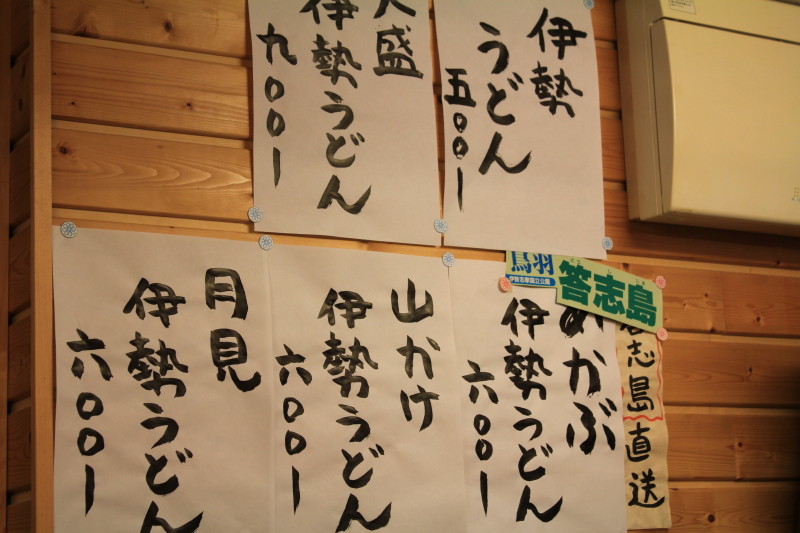 伊勢
うどん
五〇〇ー
大盛
伊勢うどん
九〇〇ー
鳥羽
伊勢志摩国立公園
答志島
答志島
直送
めかぶ
伊勢うどん
六〇〇ー
山かけ
伊勢うどん
六〇〇ー
月見
伊勢うどん
六〇〇ー